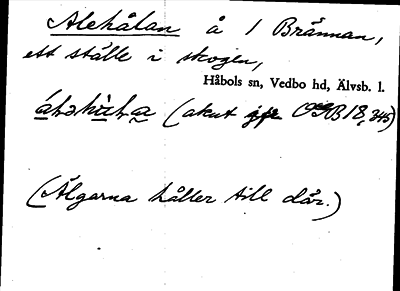 Alehålan å / Brännan,
ett ställe i skogen,
Håbols sn, Vedbo hd, Älvsb. l.
(akut jfr OGB 18, 345)
(Älgarna håller till där.)